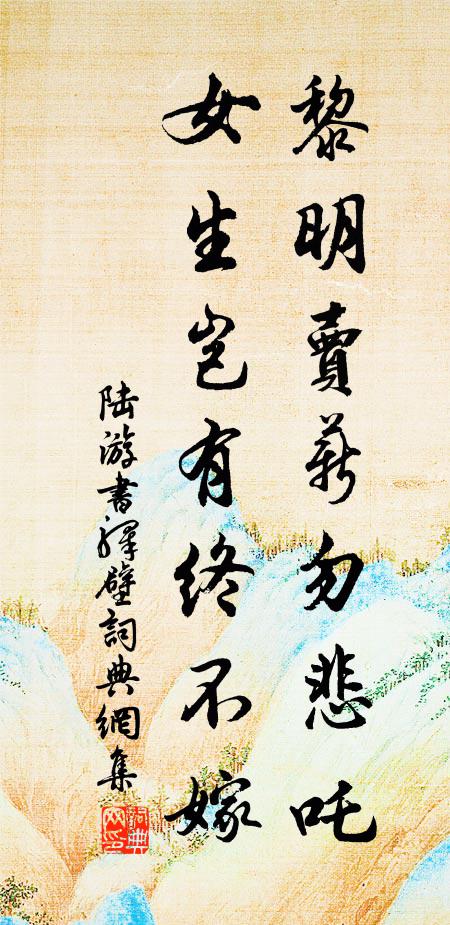 黎明賣薪勿悲吒
女生豈有終不嫁
陆游書驛壁詞典網集
詞典